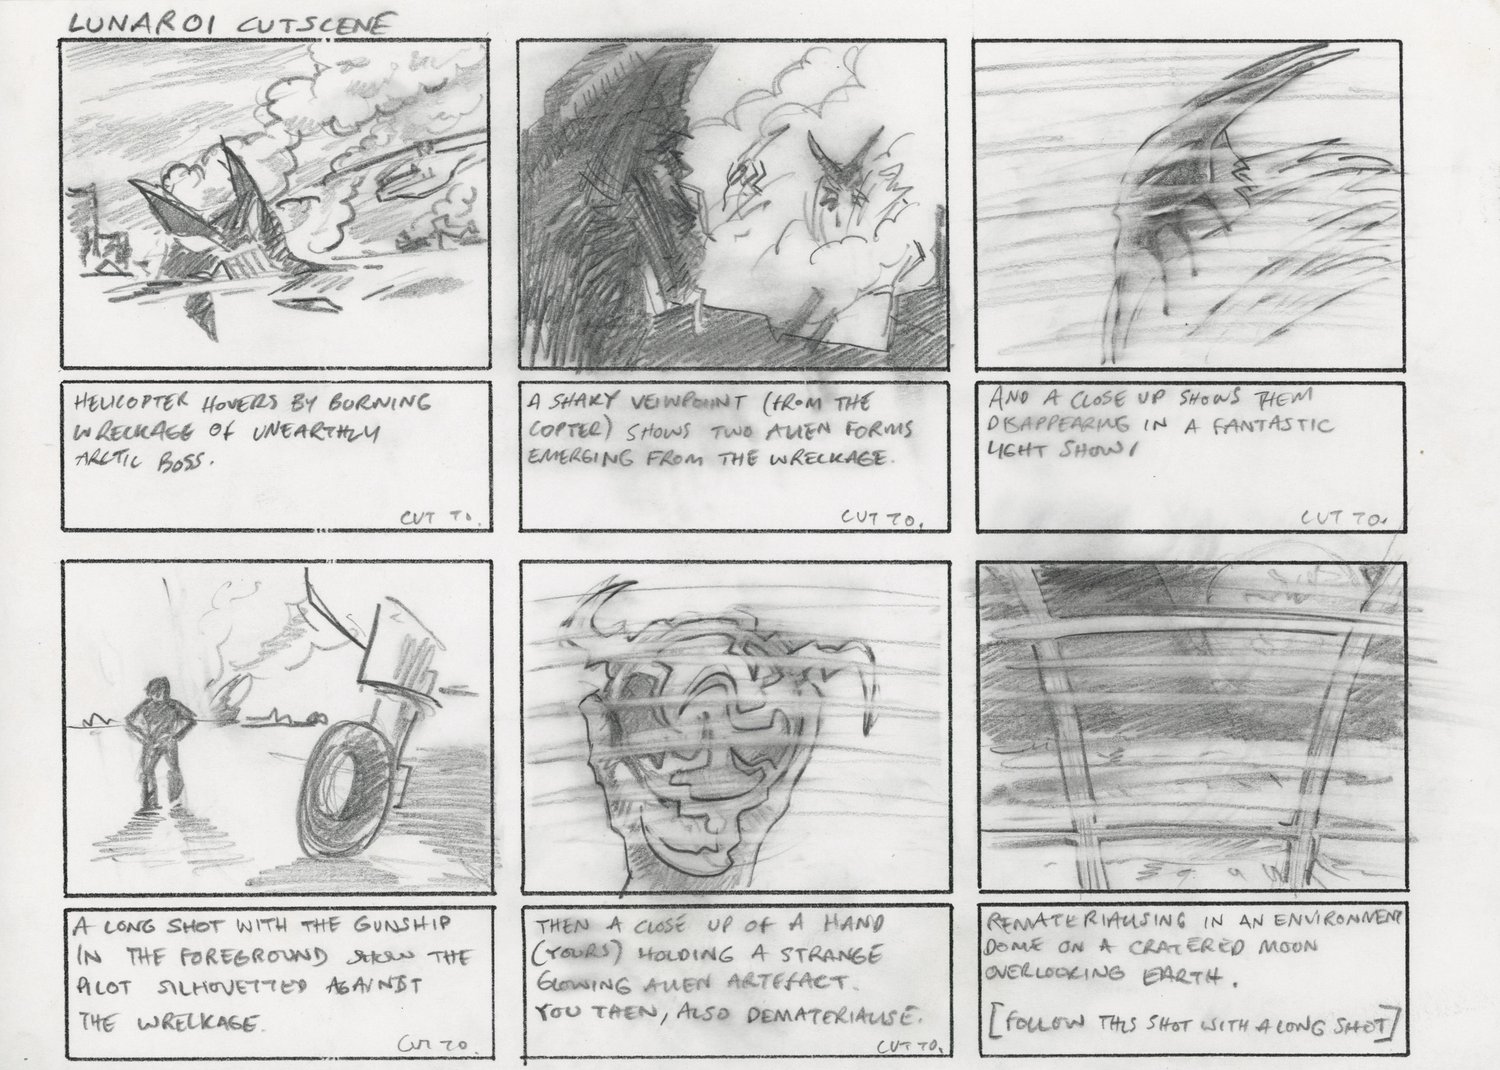 LUNAR01 CUTSCENE
HELICOPTER HOVERS BY BURNING
WRECKAGE OF UNEARTHLY
ARCTIC BOSS.
CUT TO.
A SHAKY VEIWPOINT (FROM THE
COPTER) SHOWS TWO ALIEN FORMS
EMERGING FROM THE WRECKAGE.
CUT TO.
AND A CLOSE UP SHOWS THEM
DISAPPEARING IN A FANTASTIC
LIGHT SHOW!
CUT TO.
A LONG SHOT WITH THE GUNSHIP
IN THE FOREGROUND THE
PILOT SILHOUETTED AGAINST
THE WRECKAGE.
CUT TO.
THEN A CLOSE UP OF A HAND
(YOURS) HOLDING A STRANGE
GLOWING ALIEN ARTEFACT.
YOU THEN, ALSO DEMATERIALISE.
CUT TO.
REMATERIALISING IN AN ENVIRONMENT
DOME ON A CRATERED MOON
OVERLOOKING EARTH.
[FOLLOW THIS SHOT WITH A LONG SHOT]